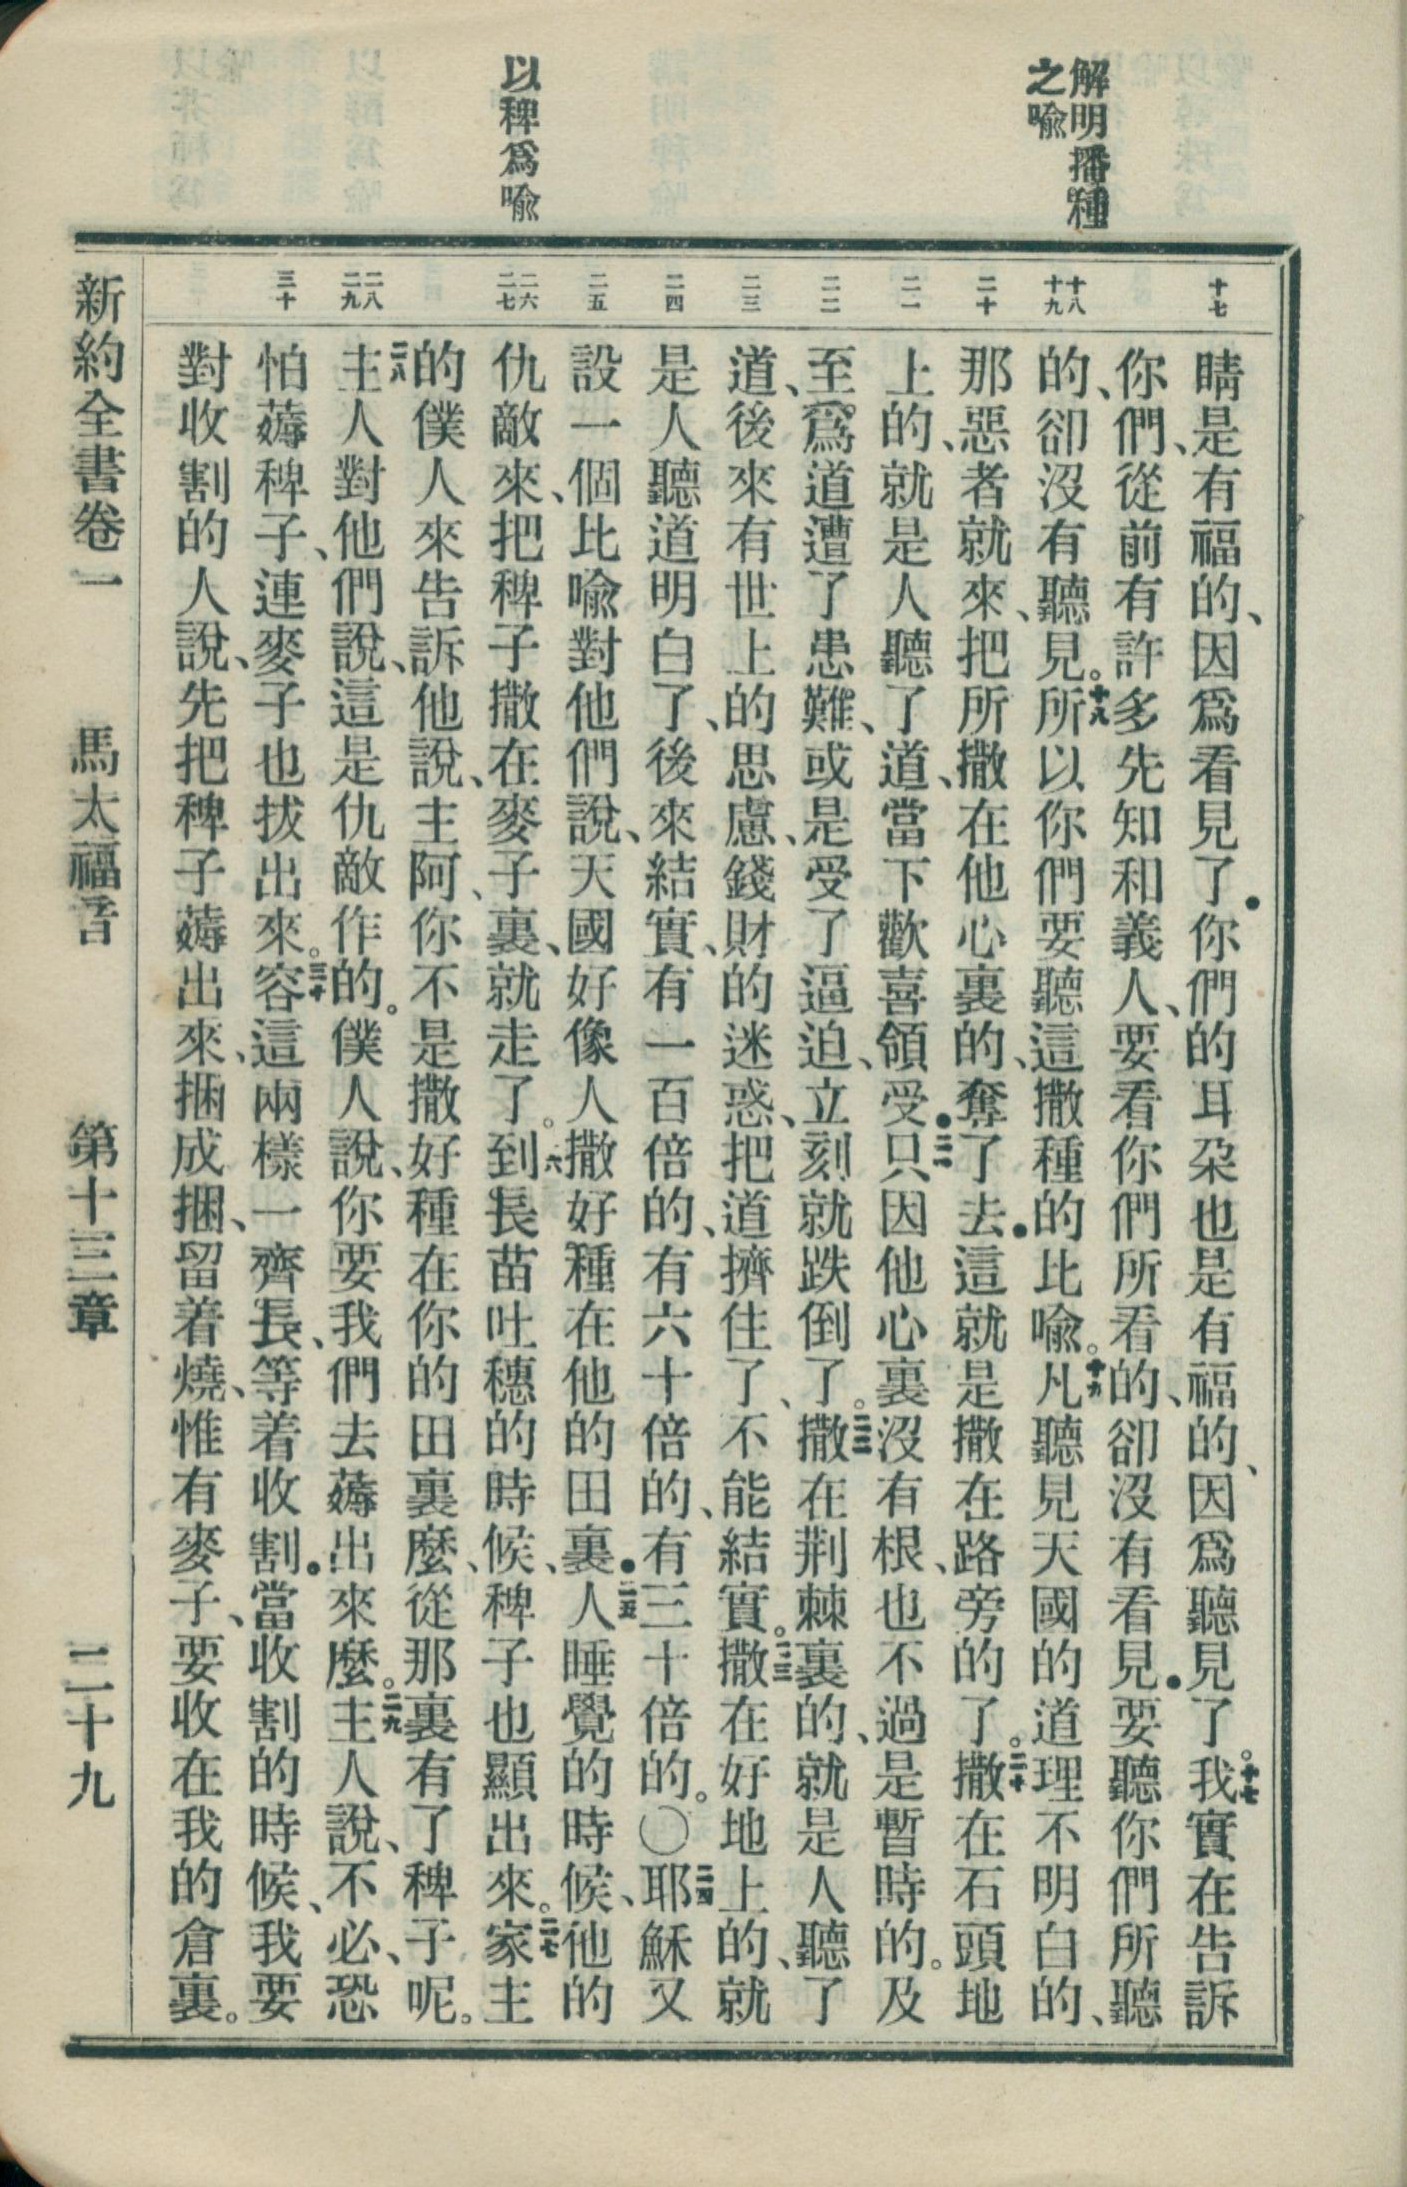 解明播種
之喩
以稗爲喩
十七
十八
十九
二十
二一
二二
二三
二四
二五
二六
二七
二八
二九
三十
睛是有福的、因爲看見了●你們的耳朶也是有福的、因爲聽見了。十七我實在告訴
你們、從前有許多先知和義人、要看你們所看的、卻沒有看見●要聽你們所聽
的、卻沒有聽見。十八所以你們要聽這撒種的比喩。十九凡聽見天國的道理不明白的、
那惡者就來、把所撒在他心裏的、奪了去●這就是撒在路旁的了。二十撒在石頭地
上的、就是人聽了道、當下歡喜領受●二一只因他心裏沒有根、也不過是暫時的。及
至爲道遭了患難、或是受了逼迫、立刻就跌倒了。二二撒在荆棘裏的、就是人聽了
道、後來有世上的思慮、錢財的迷惑、把道擠住了、不能結實。二三撒在好地上的、就
是人聽道明白了、後來結實、有一百倍的、有六十倍的、有三十倍的。〇二四耶穌又
設一個比喩對他們說、天國好像人撒好種在他的田裏●二五人睡覺的時候、他的
仇敵來、把稗子撒在麥子裏、就走了。六到長苗吐穗的時候、稗子也顯出來。二七家主
的僕人來告訴他說、主阿、你不是撒好種在你的田裏麼、從那裏有了稗子呢。
二八主人對他們說、這是仇敵作的。僕人說、你要我們去薅出來麼。二九主人說、不必、恐
怕薅稗子、連麥子也拔出來。三十容這兩樣一齊長、等着收割●當收割的時候、我要
對收割的人說、先把稗子薅出來、捆成捆、留着燒、惟有麥子、要收在我的倉裏。
新約全書卷一　馬太福音　第十三章　二十九